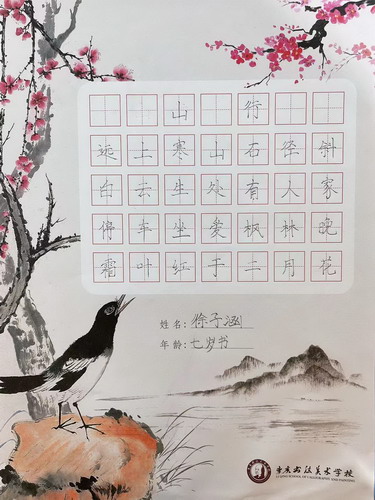 山行
远上寒山石径斜
白云生处有人家
停车坐爱枫林晚
霜叶红于二月花
姓名：徐子涵
年龄：七岁书
书法美术学校